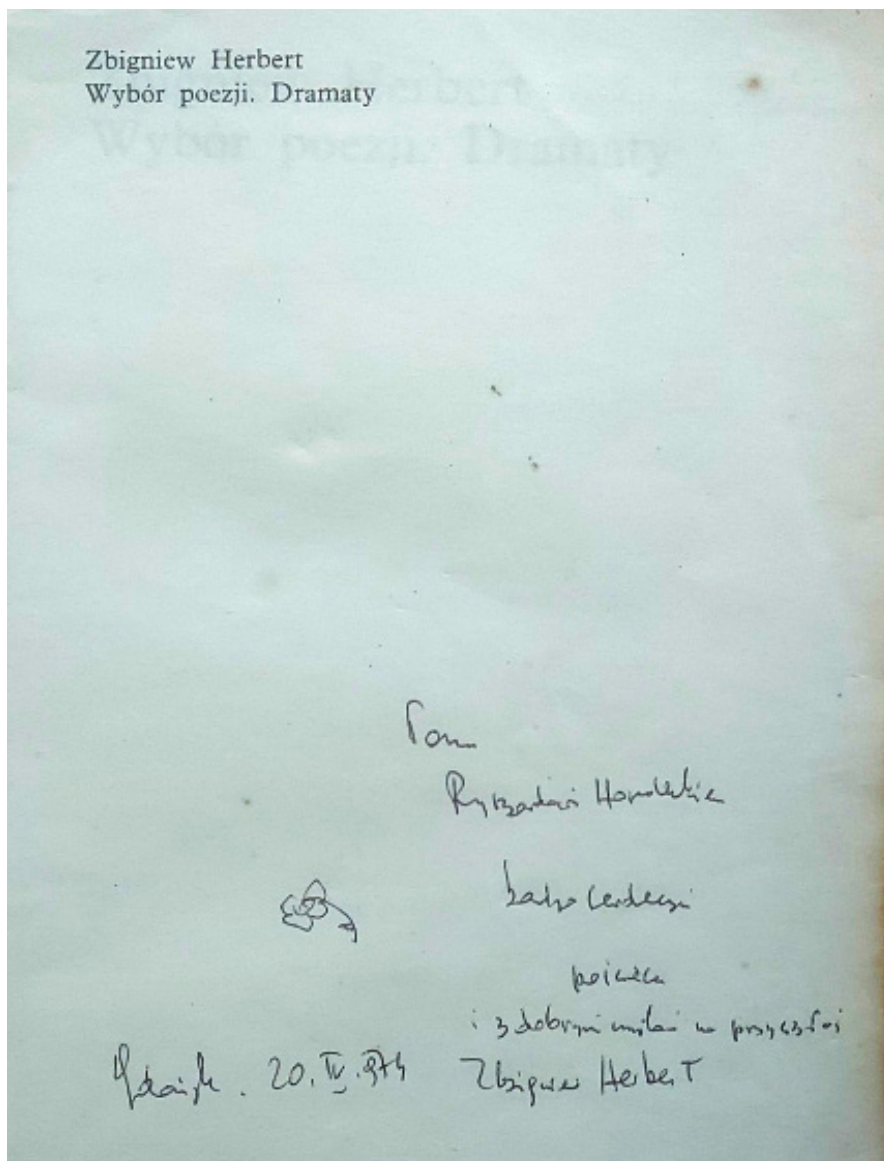 Zbigniew Herbert
Wybór poezji. Dramaty
Panu
Ryszardowi
bardzo serdecznie
poświęca
i z dobrymi myślami na przyszłość
Gdańsk. 20. IV. 974 Zbigniew Herbert